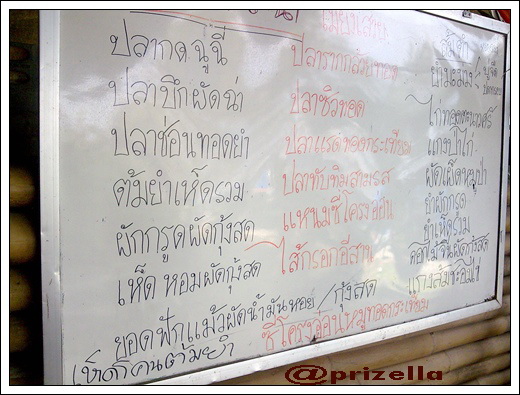 ปลากดฉู่ฉี่
ปลาบึกผัดฉ่า
ปลาช่อนทอดยำ
ต้มยำเห็ดรวม
ผักกรูดผัดกุ้งสด
เห็ดหอมผัดกุ้งสด
ยอดฟักแม้วผัดน้ำมันหอย/กุ้งสด
ปลารากกล้วยทอด
ปลาซิวทอด
ปลาแรดทอดกระเทียม
ปลาทับทิมสามรส
แหนมซี่โครงอ่อน
ไส้กรอกอีสาน
ซี่โครงอ่อนหมูทอดกระเทียม
แกงป่าไก่
ผัดเผ็ดหมูป่า
ยำผักกรูด
ยำเห็ดรวม
ดอกไม้จีนผัดกุ้งสด
แกงส้มชะอมไข่
@prizella